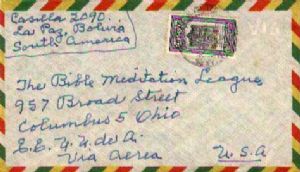 Casilla 2090.
La Paz, Bolivia
South America
The Bible Meditation League
957 Broad Street
Columbus 5 Ohio
E.E. U.U. de A.
Via Aerea U.S.A